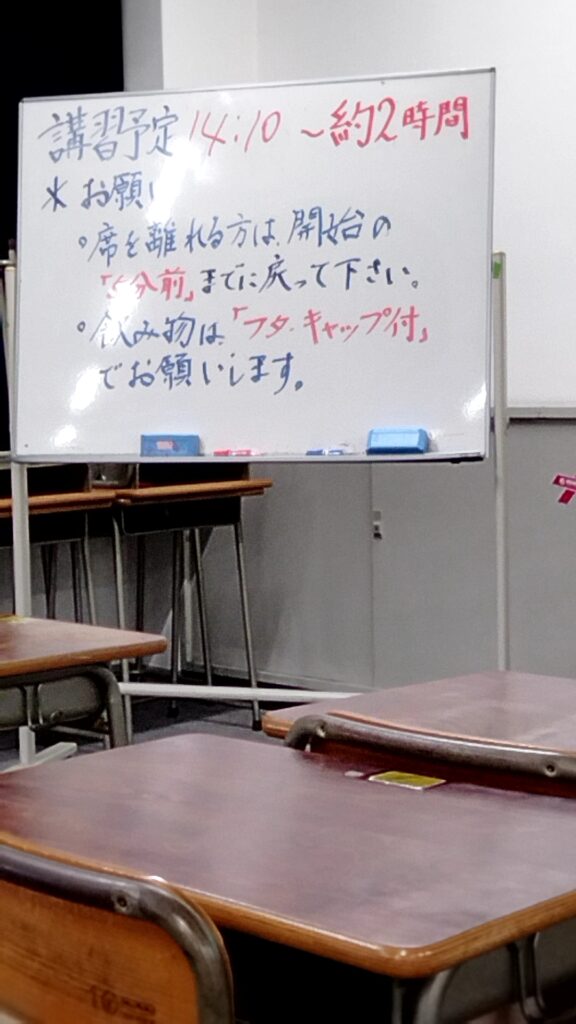 講習予定 14:10 ~約2時間
* お願い
。席を離れる方は、開始の
「5分前」までに戻って下さい。
。飲み物は、「フタ・キャップ付」
でお願いします。